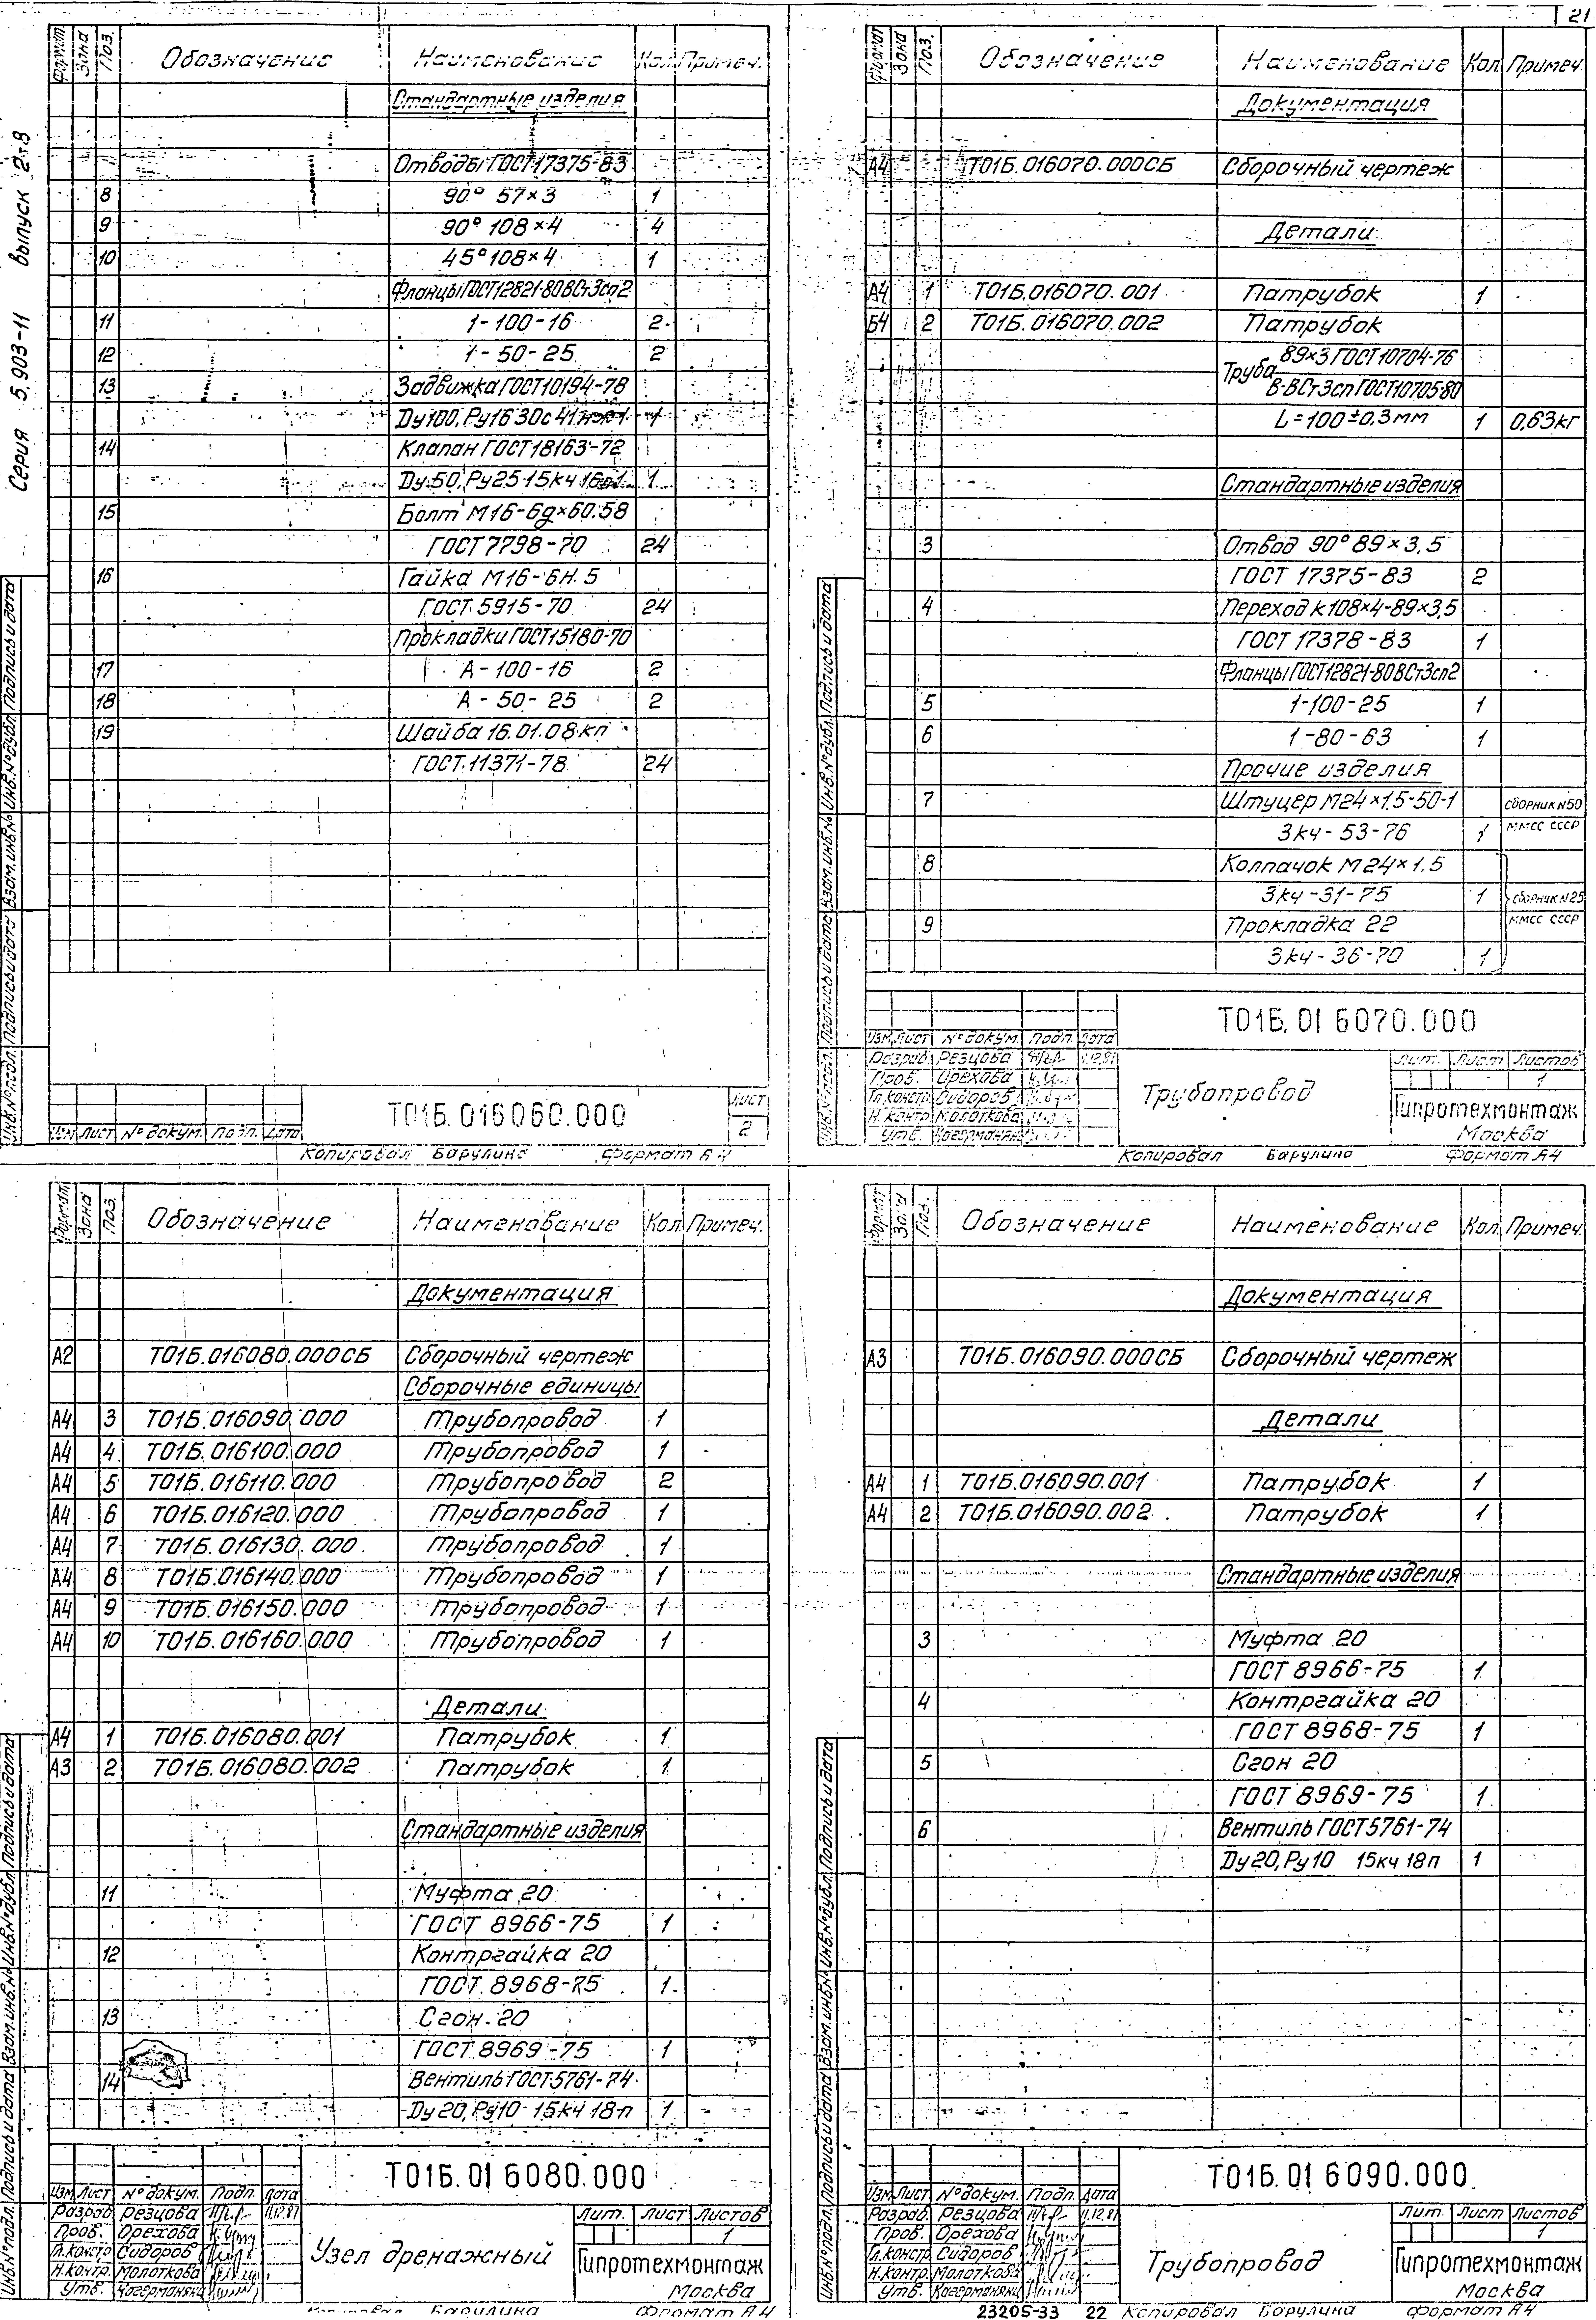 21
Серия 5.903-11 выпуск 2т.8
Формат Зона Поз. Обозначение Наименование Кол. Примеч.
Стандартные изделия
Отводы ГОСТ 17375-83
8 90° 57×3 1
9 90° 108×4 4
10 45° 108×4 1
Фланцы ГОСТ12821-80 ВСт3сп2
11 1-100-16 2
12 1-50-25 2
13 Задвижка ГОСТ10194-78
Ду100, Ру16 30с 41нж1 1
14 Клапан ГОСТ18163-72
Ду 50, Ру25 15кч 16п1 1
15 Болт М16-6g×60.58
ГОСТ 7798-70 24
16 Гайка М16-6Н.5
ГОСТ 5915-70 24
Прокладки ГОСТ15180-70
17 А-100-16 2
18 А-50-25 2
19 Шайба 16.01.08кп
ГОСТ 11371-78 24
Инв.№подл. Подпись и дата Взам.инв.№ Инв.№дубл. Подпись и дата
Изм Лист № докум. Подп. Дата
Т01Б.016060.000
Лист
2
Копировал Барулина Формат А4
Формат Зона Поз. Обозначение Наименование Кол. Примеч.
Документация
А4 Т01Б.016070.000СБ Сборочный чертеж
Детали
А4 1 Т01Б.016070.001 Патрубок 1
Б4 2 Т01Б.016070.002 Патрубок
Труба 89×3 ГОСТ 10704-76
В-ВСт3сп ГОСТ10705-80
L=100±0,3мм 1 0,63кг
Стандартные изделия
3 Отвод 90° 89×3,5
ГОСТ 17375-83 2
4 Переход К108×4-89×3,5
ГОСТ 17378-83 1
Фланцы ГОСТ12821-80 ВСт3сп2
5 1-100-25 1
6 1-80-63 1
Прочие изделия
7 Штуцер М24×1,5-50-1 сборник №50
3кч-53-76 1 ММСС СССР
8 Колпачок М24×1,5
3кч-31-75 1 сборник №25
9 Прокладка 22 ММСС СССР
3кч-36-70 1
Инв.№подл. Подпись и дата Взам.инв.№ Инв.№дубл. Подпись и дата
Т01Б.016070.000
Изм Лист № докум. Подп. Дата
Разраб. Резцова 11.12.87
Пров. Орехова
Гл.констр. Сидоров
Н.контр. Молоткова
Утв.
Трубопровод
Лит. Лист Листов
1
Гипротехмонтаж
Москва
Копировал Барулина Формат А4
Формат Зона Поз. Обозначение Наименование Кол. Примеч.
Документация
А2 Т01Б.016080.000СБ Сборочный чертеж
Сборочные единицы
А4 3 Т01Б.016090.000 Трубопровод 1
А4 4 Т01Б.016100.000 Трубопровод 1
А4 5 Т01Б.016110.000 Трубопровод 2
А4 6 Т01Б.016120.000 Трубопровод 1
А4 7 Т01Б.016130.000 Трубопровод 1
А4 8 Т01Б.016140.000 Трубопровод 1
А4 9 Т01Б.016150.000 Трубопровод 1
А4 10 Т01Б.016160.000 Трубопровод 1
Детали
А4 1 Т01Б.016080.001 Патрубок 1
А3 2 Т01Б.016080.002 Патрубок 1
Стандартные изделия
11 Муфта 20
ГОСТ 8966-75 1
12 Контргайка 20
ГОСТ 8968-75 1
13 Сгон 20
ГОСТ 8969-75 1
14 Вентиль ГОСТ5761-74
Ду 20, Ру10 15кч 18п 1
Инв.№подл. Подпись и дата Взам.инв.№ Инв.№дубл. Подпись и дата
Т01Б.016080.000
Изм Лист № докум. Подп. Дата
Разраб. Резцова 11.12.87
Пров. Орехова
Гл.констр. Сидоров
Н.контр. Молоткова
Утв.
Узел дренажный
Лит. Лист Листов
1
Гипротехмонтаж
Москва
Копировал Барулина Формат А4
Формат Зона Поз. Обозначение Наименование Кол. Примеч.
Документация
А3 Т01Б.016090.000СБ Сборочный чертеж
Детали
А4 1 Т01Б.016090.001 Патрубок 1
А4 2 Т01Б.016090.002 Патрубок 1
Стандартные изделия
3 Муфта 20
ГОСТ 8966-75 1
4 Контргайка 20
ГОСТ 8968-75 1
5 Сгон 20
ГОСТ 8969-75 1
6 Вентиль ГОСТ5761-74
Ду20, Ру10 15кч 18п 1
Инв.№подл. Подпись и дата Взам.инв.№ Инв.№дубл. Подпись и дата
Т01Б.016090.000
Изм Лист № докум. Подп. Дата
Разраб. Резцова 11.12.87
Пров. Орехова
Гл.констр. Сидоров
Н.контр. Молоткова
Утв.
Трубопровод
Лит. Лист Листов
1
Гипротехмонтаж
Москва
23205-33 22 Копировал Барулина Формат А4